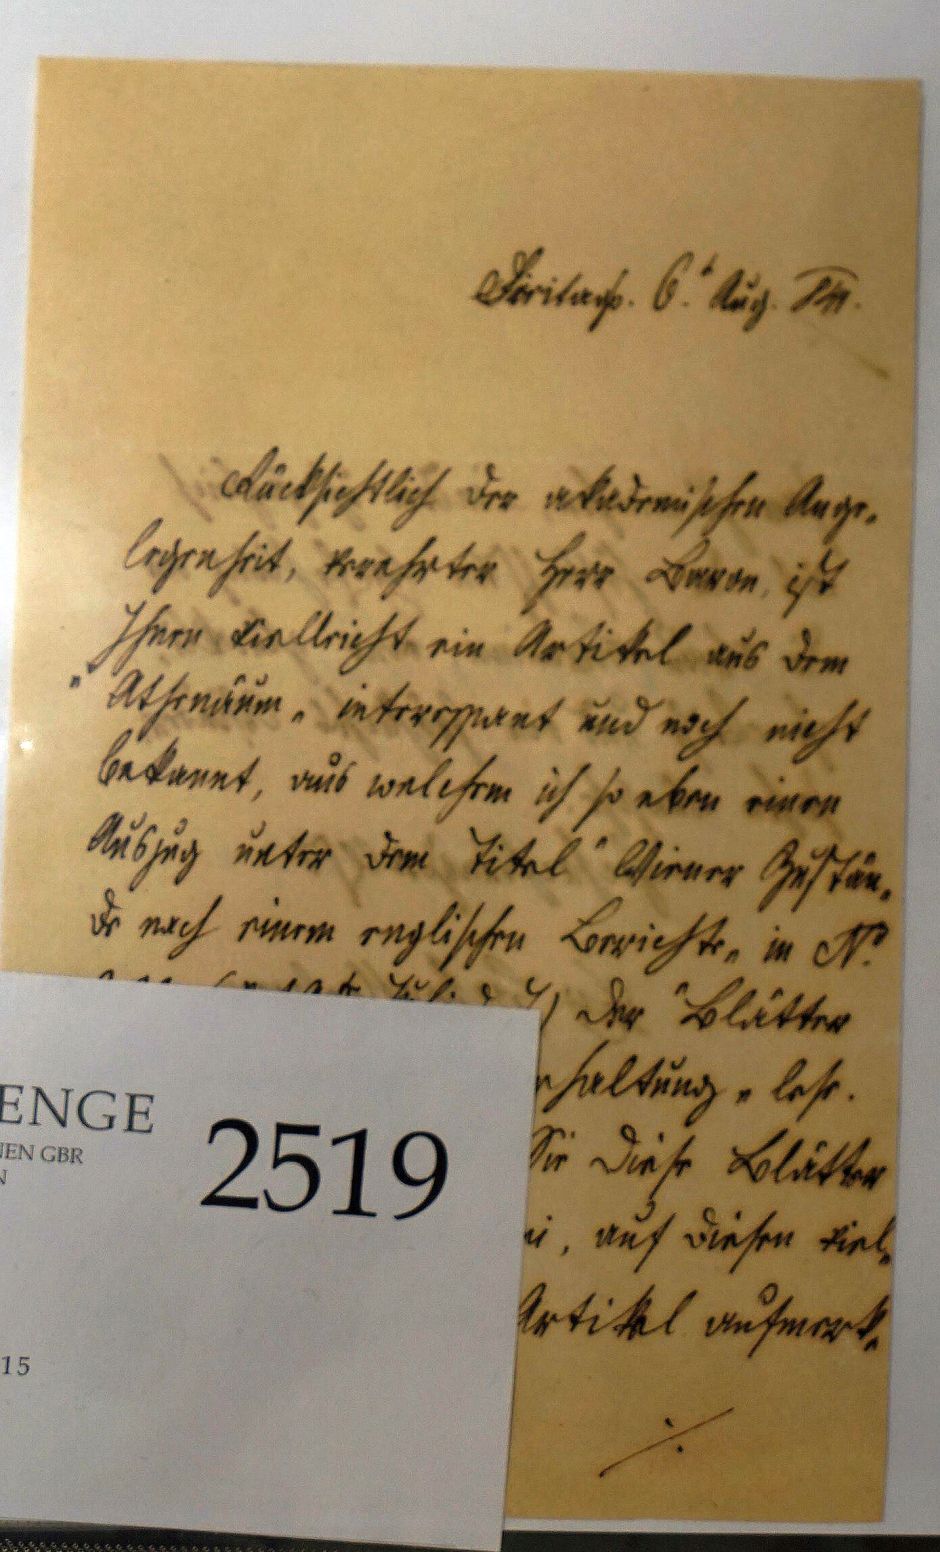 Freitags. 6t Aug.
Rücksichtlich der akademischen Ange„
legenheit, verehrter Herr Baron, ist
Ihnen vielleicht ein Artikel aus dem
"Athenäum„ interessant und noch nicht
bekannt, aus welchem ich so eben einen
Auszug unter dem Titel "Wiener Zustän„
de nach einem englischen Berichte„ in No.
Juli d. J.) der "Blätter
rhaltung„ lese.
Sie diese Blätter
auf diesen viel„
Artikel aufmerk„
./.
ENGE
NEN GBR
N
2519
15